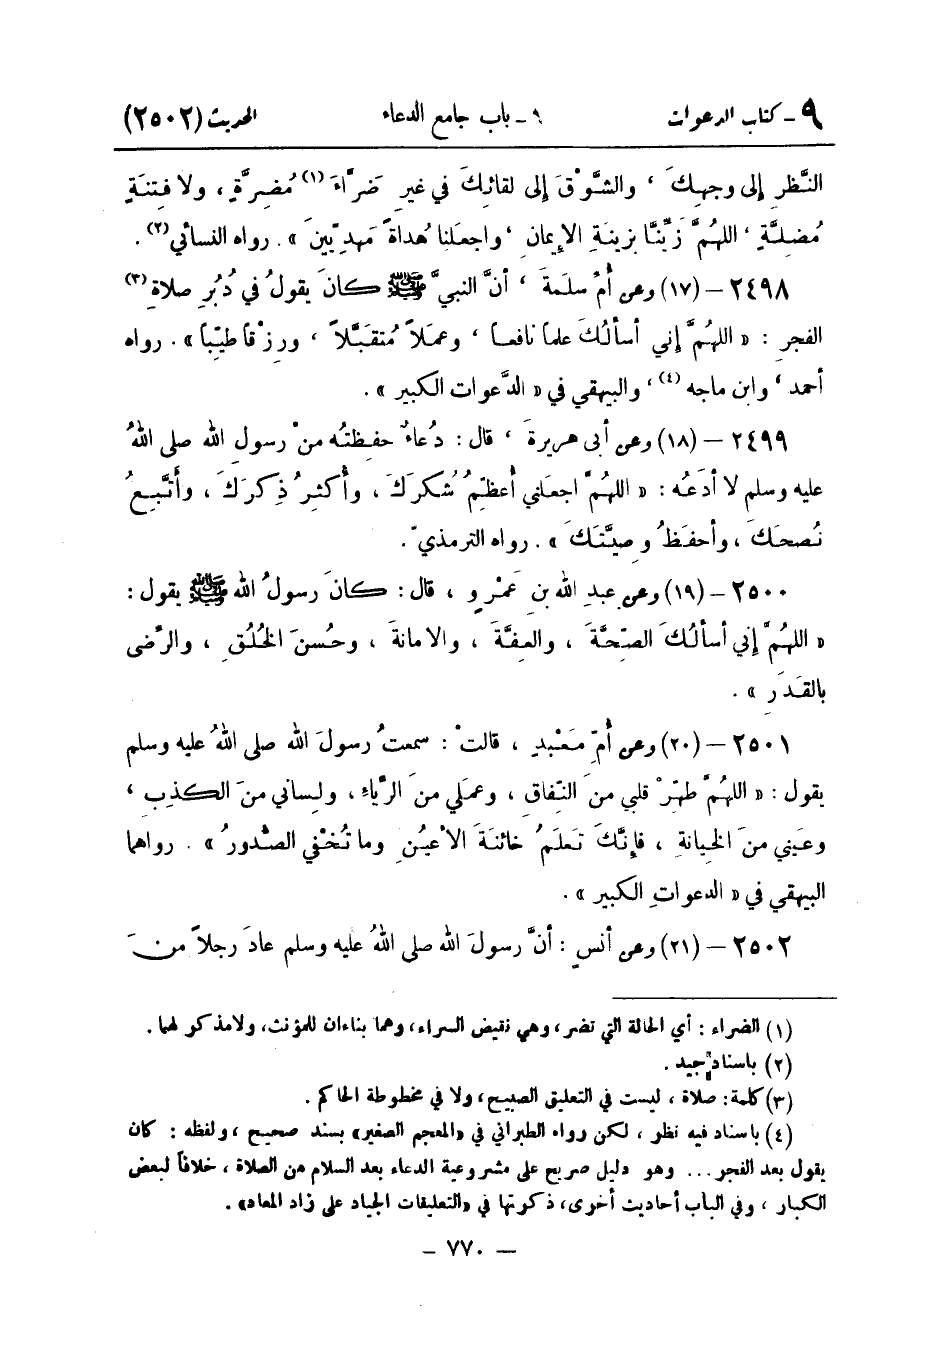 ٩- كتاب الدعوات ٩- باب جامع الدعاء الحديث (٢٥٠٢)
النَّظر إلى وجهِكَ ، والشَّوْقَ إلى لقائِكَ في غيرِ ضَرَّاءَ (١) مُضِرَّةٍ ، ولا فتنةٍ
مُضِلَّةٍ ، اللهُمَّ زَيِّنَّا بزينةِ الإيمانِ ، واجعَلنا هُداةً مَهدِيّينَ » . رواه النسائي (٢) .
٢٤٩٨ – (١٧) وعن أُمِّ سلَمةَ ، أنَّ النبيَّ ﷺ كانَ يقولُ في دُبُرِ صلاةِ (٣)
الفجرِ : « اللهُمَّ إني أسألُكَ علماً نافعاً ، وعمَلاً مُتقبَّلاً ، ورزْقاً طيِّباً » . رواه
أحمد ، وابن ماجه (٤) ، والبيهقي في « الدَّعوات الكبير » .
٢٤٩٩ – (١٨) وعن أبي هريرةَ ، قال : دُعاءٌ حفِظتُه منْ رسولِ الله صلى اللهُ
عليه وسلم لا أدَعُه : « اللهُمَّ اجعَلني أُعظِّمُ شُكرَكَ ، وأُكثِرُ ذِكرَكَ ، وأتَّبِعُ
نُصحَكَ ، وأحفَظُ وصِيَّتَكَ » . رواه الترمذيّ .
٢٥٠٠ – (١٩) وعن عبدِ الله بنِ عَمْرٍو ، قال : كانَ رسولُ الله ﷺ يقول :
« اللهُمَّ إني أسألُكَ الصِّحَّةَ ، والعِفَّةَ ، والأمانةَ ، وحُسنَ الخُلُقِ ، والرِّضى
بالقَدَرِ » .
٢٥٠١ – (٢٠) وعن أُمِّ مَعْبدٍ ، قالتْ : سمعتُ رسولَ الله صلى اللهُ عليه وسلم
يقول : « اللهُمَّ طهِّرْ قلبي منَ النِّفاقِ ، وعمَلي منَ الرِّياءِ ، ولِساني منَ الكذِبِ ،
وعَيني منَ الخِيانةِ ، فإنَّكَ تَعلَمُ خائنةَ الأعْيُنِ وما تُخْفي الصُّدورُ » . رواهما
البيهقي في « الدعواتِ الكبير » .
٢٥٠٢ – (٢١) وعن أنسٍ : أنَّ رسولَ الله صلى اللهُ عليه وسلم عادَ رجلاً منَ
(١) الضراء : أي الحالة التي تضر ، وهي نقيض السراء ، وهما بناءان للمؤنث ، ولا مذكر لهما .
(٢) باسناد جيد .
(٣) كلمة : صلاة ، ليست في التعليق الصبيح ، ولا في مخطوطة الحاكم .
(٤) باسناد فيه نظر ، لكن رواه الطبراني في «المعجم الصغير» بسند صحيح ، ولفظه : كان
يقول بعد الفجر ... وهو دليل صريح على مشروعية الدعاء بعد السلام من الصلاة ، خلافاً لبعض
الكبار ، وفي الباب أحاديث أخرى ، ذكرتها في «التعليقات الجياد على زاد المعاد» .
– ٧٧٠ –